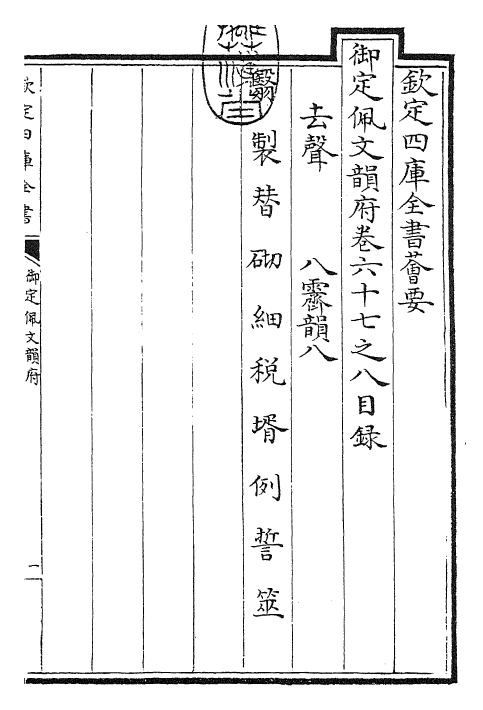 欽定四庫全書薈要
御定佩文韻府卷六十七之八目録
去聲 八霽韻八
製 替 砌 細 税 壻 例 誓 筮
欽定四庫全書
御定佩文韻府
一